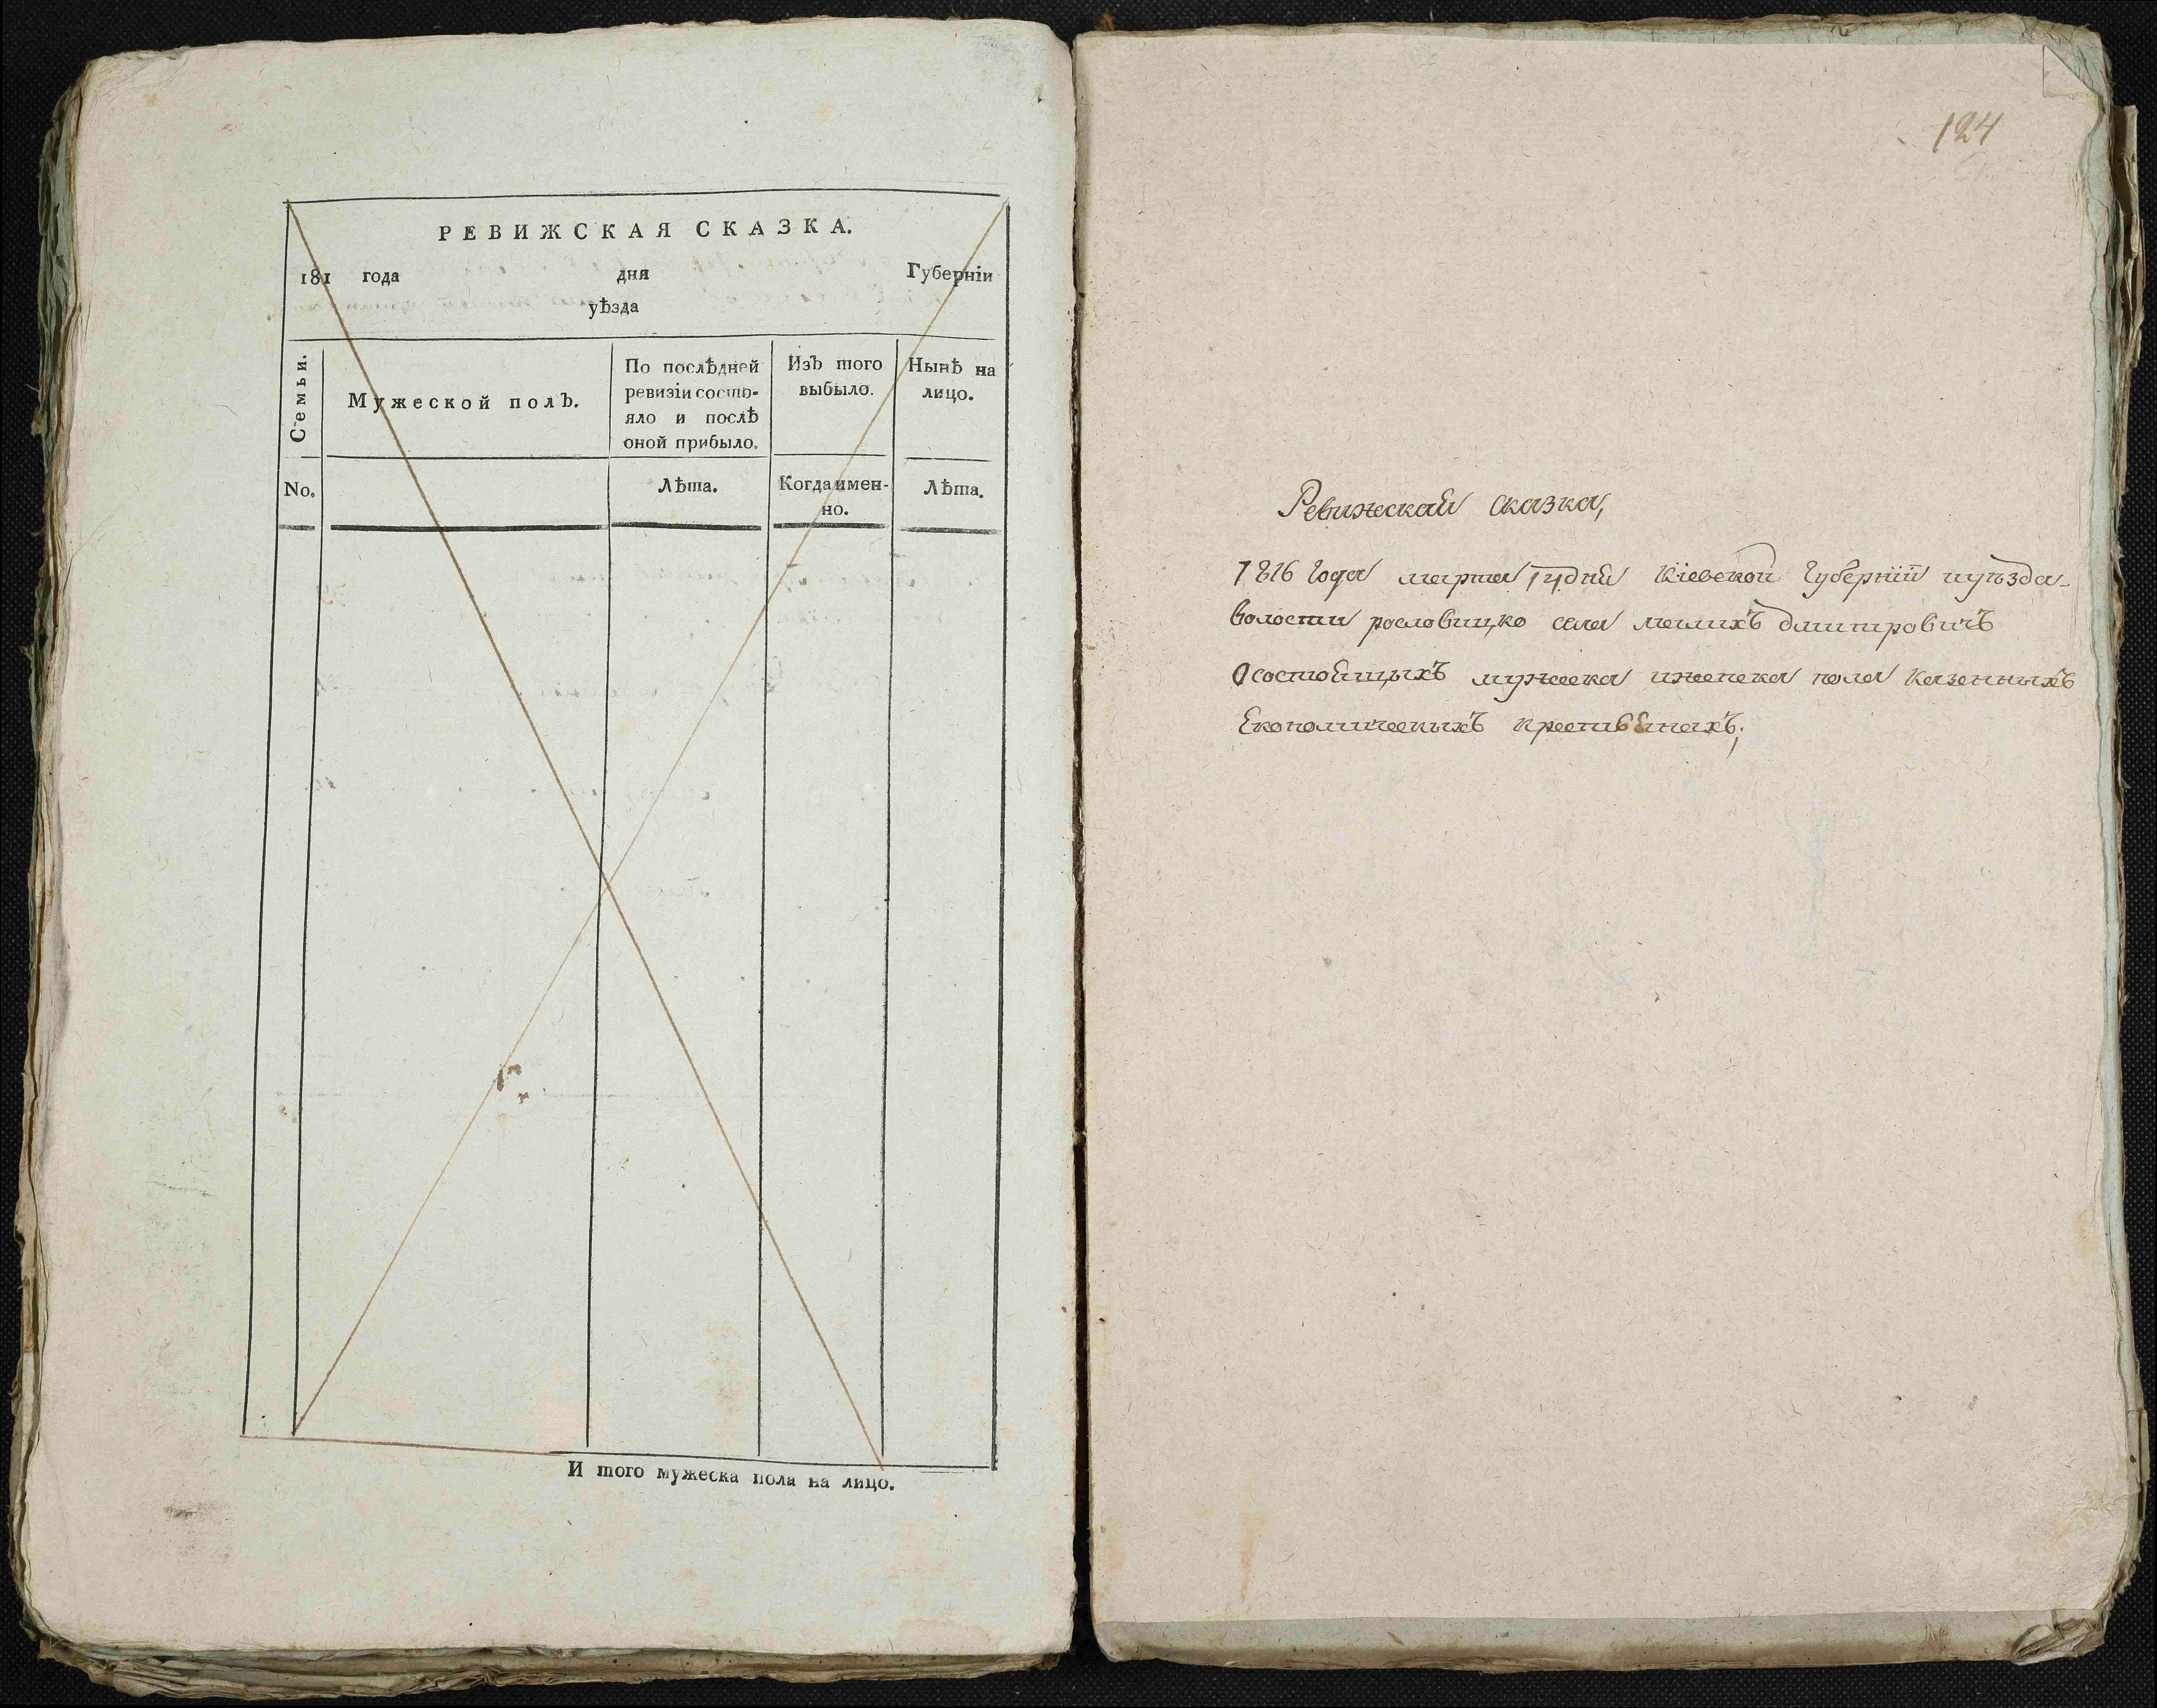 РЕВИЖСКАЯ СКАЗКА.
181 года дня Губернїи
уѣзда
Семьи.
Мужеской полъ.
По послѣдней
ревизїи состо-
яло и послѣ
оной прибыло.
Изъ того
выбыло.
Нынѣ на
лицо.
No.
Лѣта.
Когда имен-
но.
Лѣта.
И того мужеска пола на лицо.
124
Ревижская сказка,
1816 года марта 14 дня Кіевской Губерніи иуѣзда
волости села малихъ дмитровичъ
О состоящихъ мужеска иженска пола казенныхъ
Економическихъ крестьянахъ;